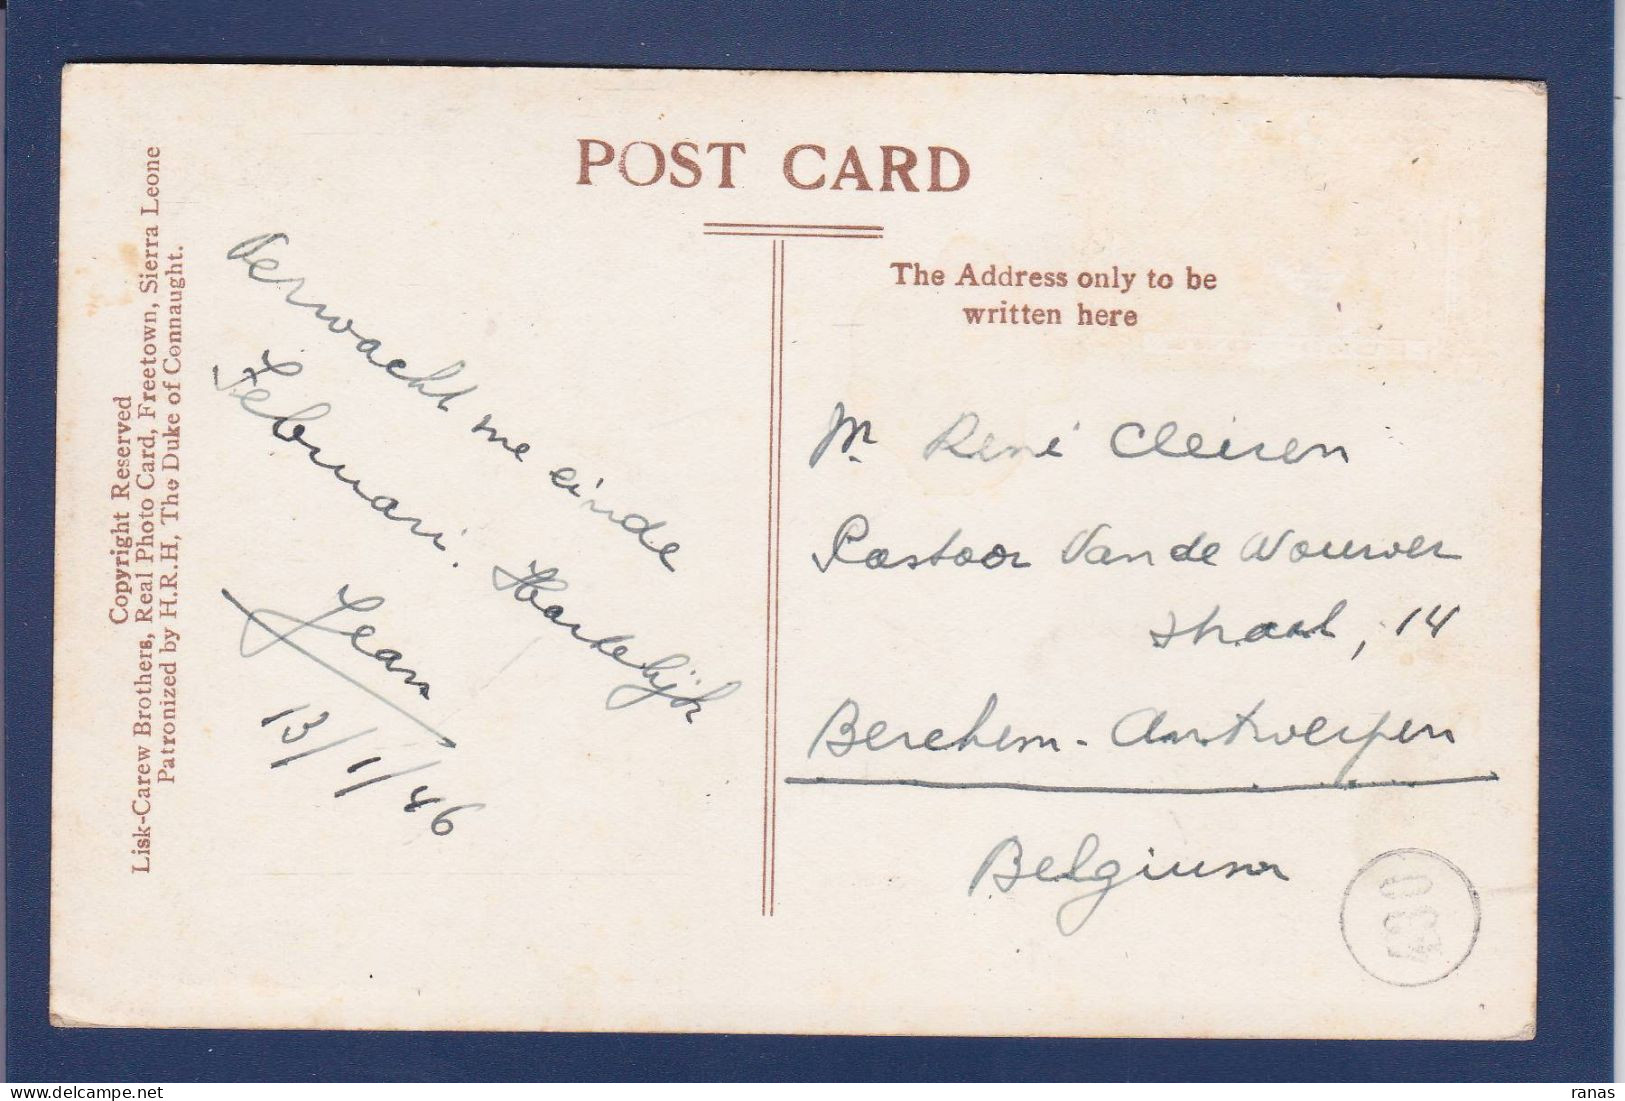 POST CARD
The Address only to be
written here
Copyright Reserved
Lisk-Carew Brothers, Real Photo Card, Freetown, Sierra Leone
Patronized by H.R.H, The Duke of Connaught.
Verwacht me einde
Februari. Hartelijk
Jean
13/1/46
Mr René Cleiren
Pastoor Van de Wouwer
straat, 14
Berchem - Antwerpen
Belgium
ranas